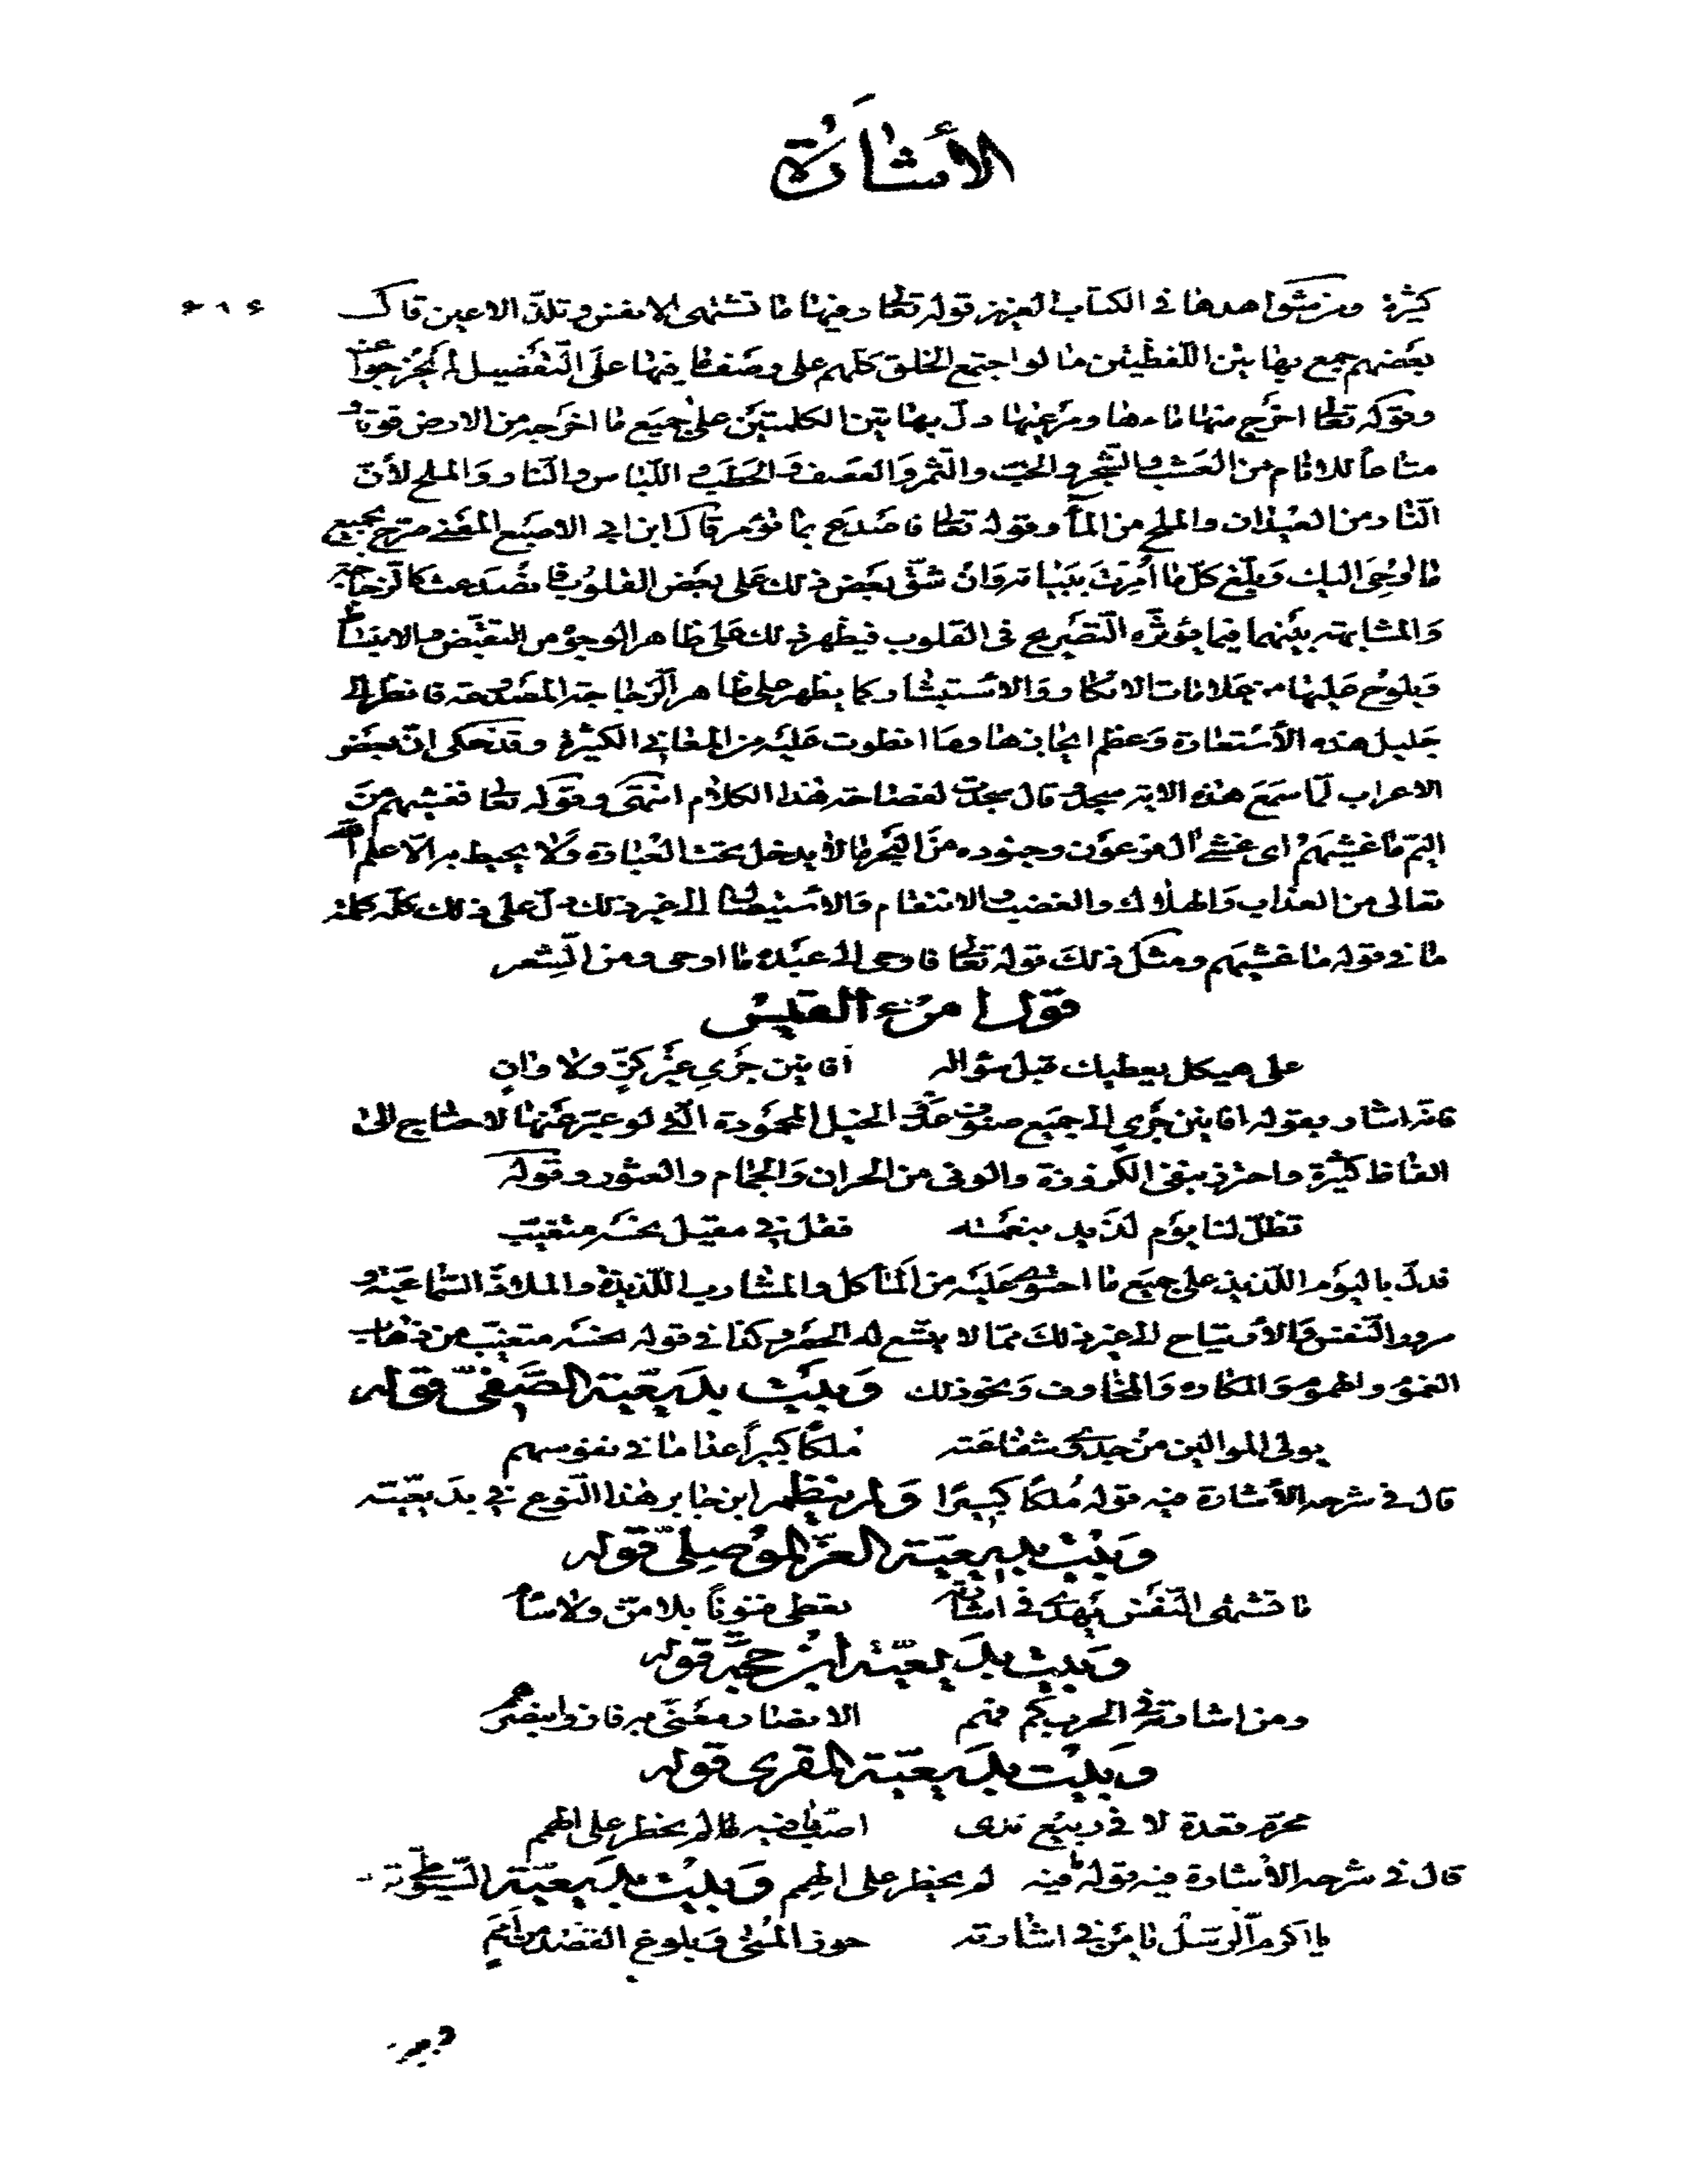 الأشارة
كثيرة ومن شواهدها في الكتاب العزيز قوله تعالى وفيها ما تشتهى الانفس وتلذّ الاعين قال
بعضهم جمع بهاتين اللّفظيتن ما لو اجتمع الخلق كلّهم على وصف ما فيها على التّفضيل لم يخرجوا عنه
وقوله تعالى اخرج منها ماءها ومرعيها دلّ بهاتين الكلمتين على جميع ما اخرجه من الارض قوتا و
متاعاً للانام من العشب والشّجر والحبّ والثّمر والعصف والحطب واللّباس والنّار والملح لأنّ
النّار من العيدان والملح من الماء وقوله تعالى فاصدع بما تؤمر قال ابن ابي الاصبع المعنى صرّح بجميع
ما اوحى اليك وبلّغ كلّ ما أمرت ببيانه وان شقّ بعض ذلك على بعض القلوب فانصدعت كالزّجاجة
والمشابهة بينهما فيما يؤثّره التّصريح في القلوب فيظهر ذلك على ظاهر الوجوه من التقبّض والانبساط
ويلوح عليها من علامات الانكار والاستبشار كما يظهر على ظاهر الزّجاجة المصدوعة فانظر الى
جليل هذه الأستعارة وعظم ايجازها وما انطوت عليه من المعاني الكثيرة وقد حكى انّ بعض
الاعراب لمّا سمع هذه الاية سجد وقال سجدت لفصاحة هذا الكلام انتهى وقوله تعالى فغشيهم من
اليمّ ما غشيهم اى غشى آل فرعون وجنوده من اليمّ ما لا يدخل تحت العبارة ولا يحيط به الّا علم الله
تعالى من العذاب والهلاك والغضب والانتقام والاستيصال الى غير ذلك دلّ على ذلك كلّه كلمة
ما في قوله ما غشيهم ومثل ذلك قوله تعالى فاوحى الى عبده ما اوحى ومن الشّعر
قول امرء القيس
على هيكل يعطيك قبل سؤاله أفانين جري غير كزّ ولا وانٍ
فانّه اشار بقوله افانين جري الى جميع صنوف عدو الخيل المحمودة الّتي لو عبّر عنها لاحتاج الى
الفاظ كثيرة واحترز بنفى الكزوزة والونى من الحران والجماح والعثور وقوله
تظلّ لنا يوم لذيد بنعمة فقل في مقيل نحسه متغيّب
فدلّ باليوم اللّذيذ على جميع ما احتوى عليه من المآكل والمشارب اللّذيذة والملاذّ السّماعيّة و
سرور النّفس والأرتياح الى غير ذلك ممّا لا يتّسع له الحصر وكذا في قوله نحسه متغيّب من ذهاب
الغموم والهموم والمكاره والمخاوف ونحو ذلك وبيت بديعيّة الصّفيّ قوله
يولى الموالين من جدوى شفاعته ملكًا كبيراً عدا ما في نفوسهم
قال في شرحه الأشارة فيه قوله مُلكًا كبيرًا ولم ينظم ابن جابر هذا النّوع في بديعيّته
وبيت بديعيّة العزّ الموصلىّ قوله
ما تشتهى النّفس يهدى في اشارته يعطى فنوناً بلا منّ ولا سأم
وبيت بديعيّة ابن حجّة قوله
ومن اشارته في الحرب كم فهم الانصار معنى به فازوا بنصرهم
وبيت بديعيّة المقرى قوله
محرّم قعدة لا في ربيع ندى اصناف فيه ما لم يخطر على الهمم
قال في شرحه الأشارة فيه قوله فيه لم يخطر على الهمم وبيت بديعيّة السّيوطىّ
يا اكرم الرّسل يا من في اشارته حوز المنى وبلوغ القصد من أمم